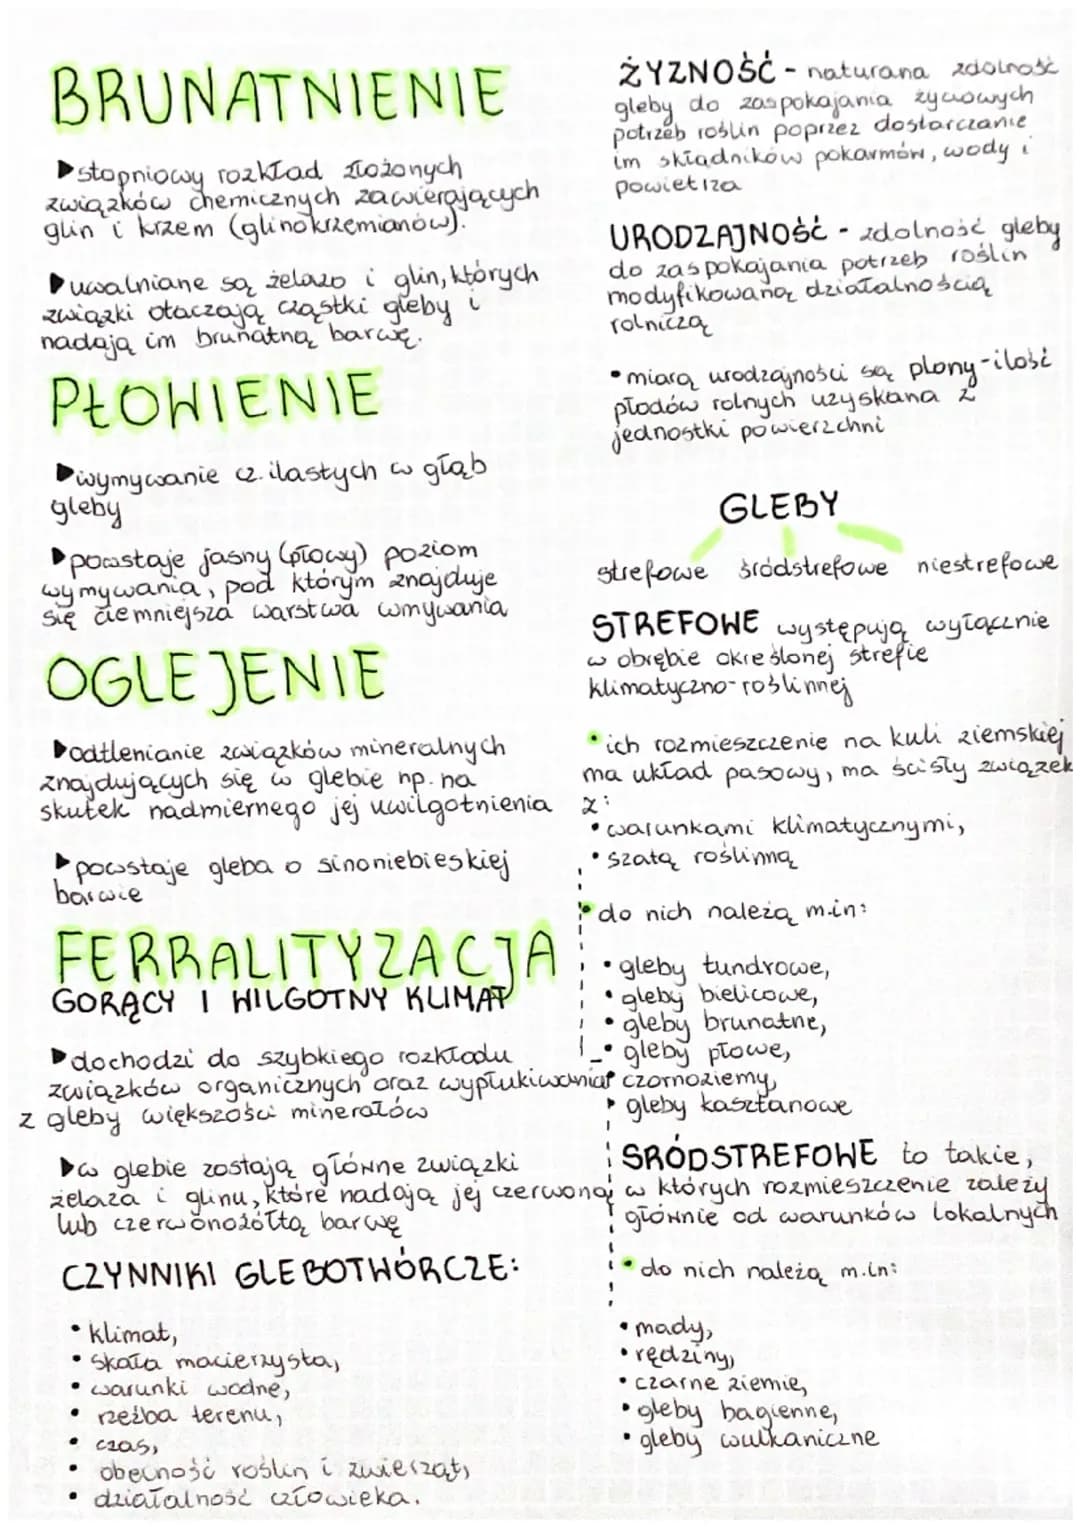 BRUNATNIENIE
▶stopniowy rozkład złożonych
związków chemicznych zawierających
glin i krzem (glinokrzemianów).
▶uwalniane są żelazo i glin, których
związki otaczają cząstki gleby i
nadają im brunatną barwę.
PŁOWIENIE
▶wymywanie cz. ilastych w głąb
gleby
▶powstaje jasny (płowy) poziom
wymywania, pod którym znajduje
się ciemniejsza warstwa wmywania
OGLEJENIE
▶odtlenianie związków mineralnych
znajdujących się w glebie np. na
skutek nadmiernego jej uwilgotnienia
▶powstaje gleba o sinoniebieskiej
barwie
FERRALITYZACJA
GORĄCY I WILGOTNY KLIMAT
▶dochodzi do szybkiego rozkładu
związków organicznych oraz wypłukiwania
z gleby większości minerałów
▶w glebie zostają głównne związki
żelaza i glinu, które nadają jej czerwoną
lub czerwonożółtą barwę
CZYNNIKI GLEBOTWÓRCZE:
• klimat,
• skała macierzysta,
• warunki wodne,
• rzeźba terenu,
• czas,
• obecność roślin i zwierząt,
• działalność człowieka.
ŻYZNOŚĆ - naturana zdolność
gleby do zaspokajania życiowych
potrzeb roślin poprzez dostarczanie
im składników pokarmów, wody i
powietrza
URODZAJNOŚĆ - zdolność gleby
do zaspokajania potrzeb roślin
modyfikowaną działalnością
rolniczą
• miarą urodzajności są plony - ilość
płodów rolnych uzyskana z
jednostki powierzchni
GLEBY
strefowe śródstrefowe niestrefowe
STREFOWE występują wyłącznie
w obrębie określonej strefie
klimatyczno-roślinnej
• ich rozmieszczenie na kuli ziemskiej
ma układ pasowy, ma ścisły związek
z:
• warunkami klimatycznymi,
• szatą roślinną
• do nich należą m.in:
• gleby tundrowe,
• gleby bielicowe,
• gleby brunatne,
• gleby płowe,
• czornoziemy,
• gleby kasztanowe
ŚRÓDSTREFOWE to takie,
w których rozmieszczenie zależy
głównie od warunków lokalnych
• do nich należą m.in:
• mady,
• rędziny,
• czarne ziemie,
• gleby bagienne,
• gleby wulkaniczne